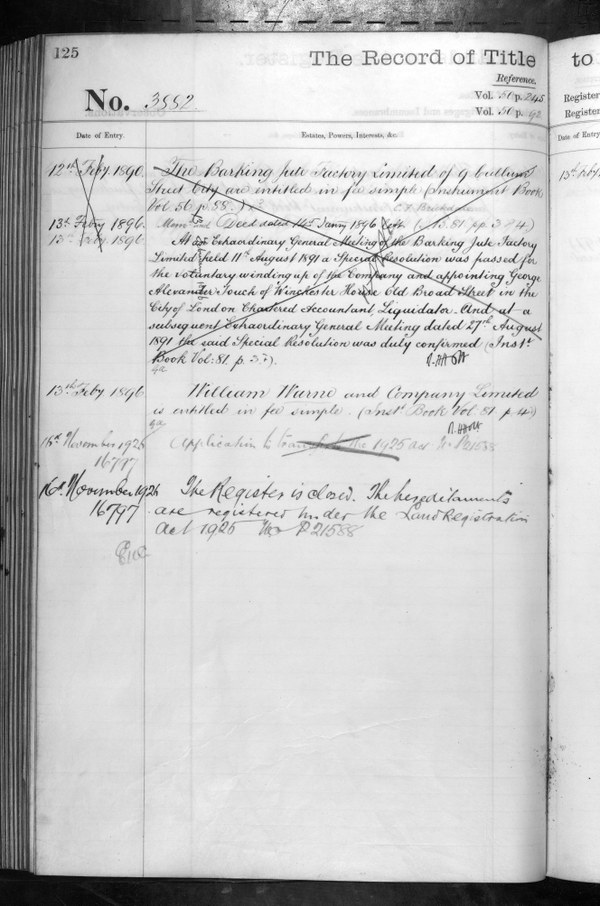 125
The Record of Title
to
Reference.
No. 3552
Vol. 50 p. 245
Vol. 50 p. 92
Register
Register
Date of Entry.
Estates, Powers, Interests, &c.
Date of Entry
12th Feby. 1890. The Barking Jute Factory Limited of 9 Cullum
Street City are entitled in fee simple (Instrument Book
Vol. 56 p. 88.)
13th Feby 1896. Deed dated 14th Janry 1896
13th Feby 1896. At an Extraordinary General Meeting of the Barking Jute Factory
Limited held 11th August 1891 a Special Resolution was passed for
the voluntary winding up of the Company and appointing George
Alexander Touch of Winchester House Old Broad Street in the
City of London Chartered Accountant, Liquidator. And at a
subsequent Extraordinary General Meeting dated 27th August
1891 the said Special Resolution was duly confirmed (Inst.
Book Vol: 81. p. 3.)
13th Feby 1896. William Warne and Company Limited
is entitled in fee simple. (Inst. Book Vol. 81 p. 4.)
16th November 1926 Application to transfer to the 1925 act No P21588
16797
16th November 1926 The Register is closed. The hereditaments
16797 are registered under the Land Registration
Act 1925 No P21588